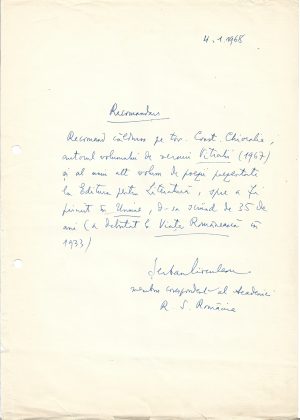 4.1.1968
Recomandare
Recomand călduros pe tov. Const. Chioralia,
autorul volumului de versuri Vitralii (1967)
și al unui alt volum de poezii prezentate
la Editura pentru Literatură, spre a fi
primit în Uniune, d-sa scriind de 35 de
ani (a debutat la Viața Românească în
1933)
Șerban Cioculescu
membru corespondent al Academiei
R. S. România